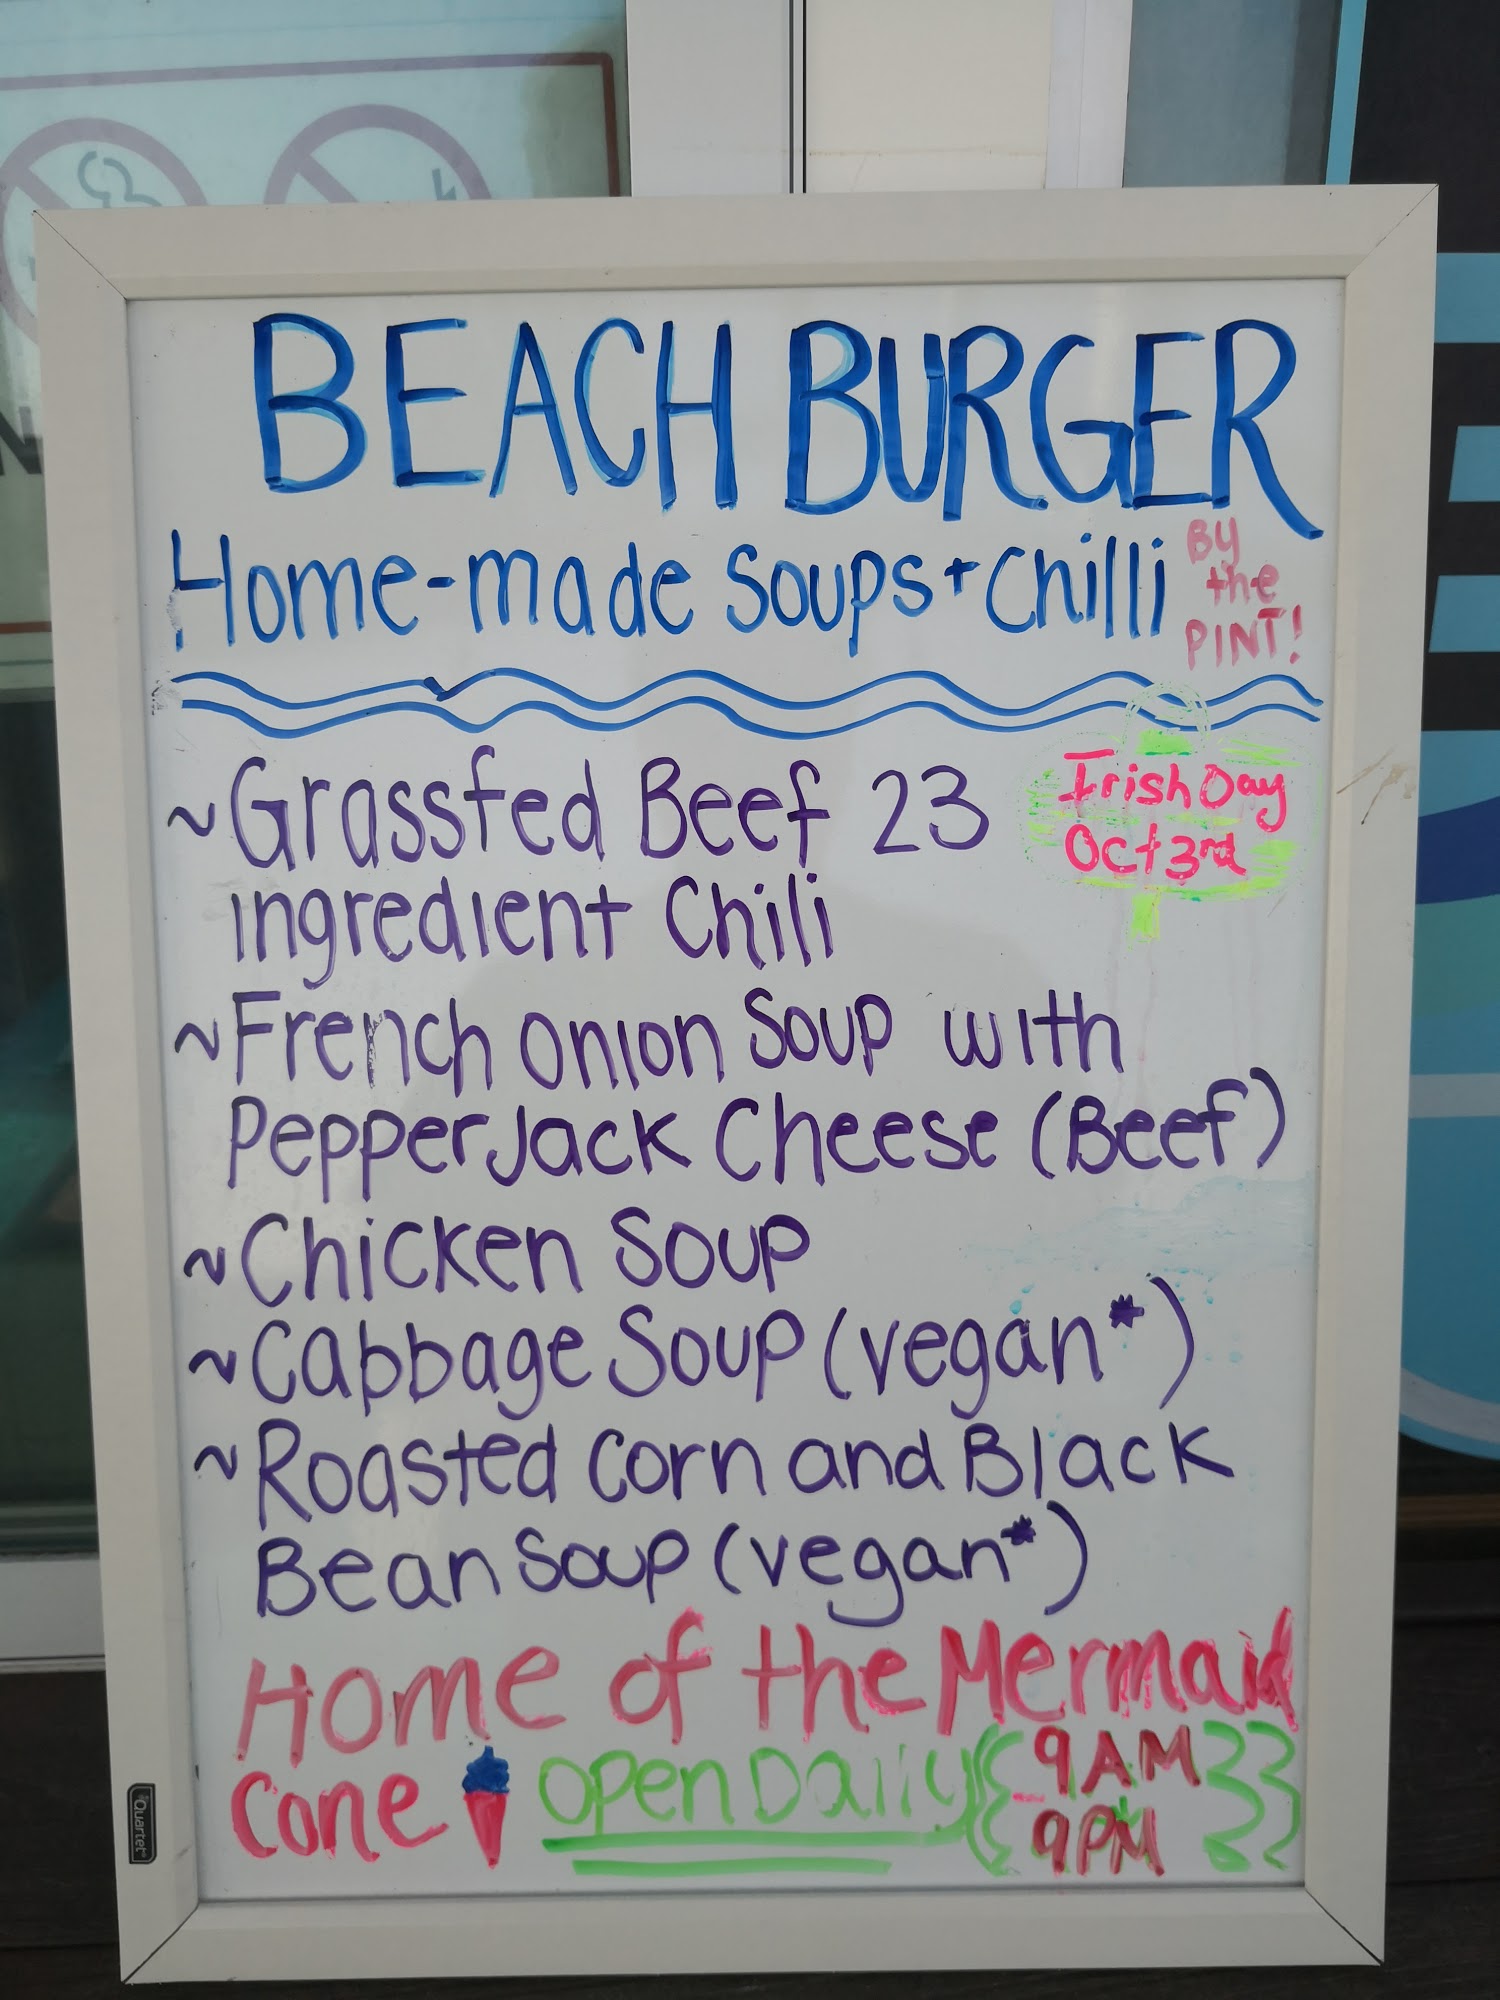 BEACH BURGER
Home-made Soups + Chilli
By
the
PINT!
Irish Day
Oct 3rd
~ Grassfed Beef 23
ingredient Chili
~ French Onion Soup with
Pepper Jack Cheese (Beef)
~ Chicken Soup
~ Cabbage Soup (vegan*)
~ Roasted Corn and Black
Bean Soup (vegan*)
Home of the Mermaid
Cone Open Daily 9AM
9PM
Quartet